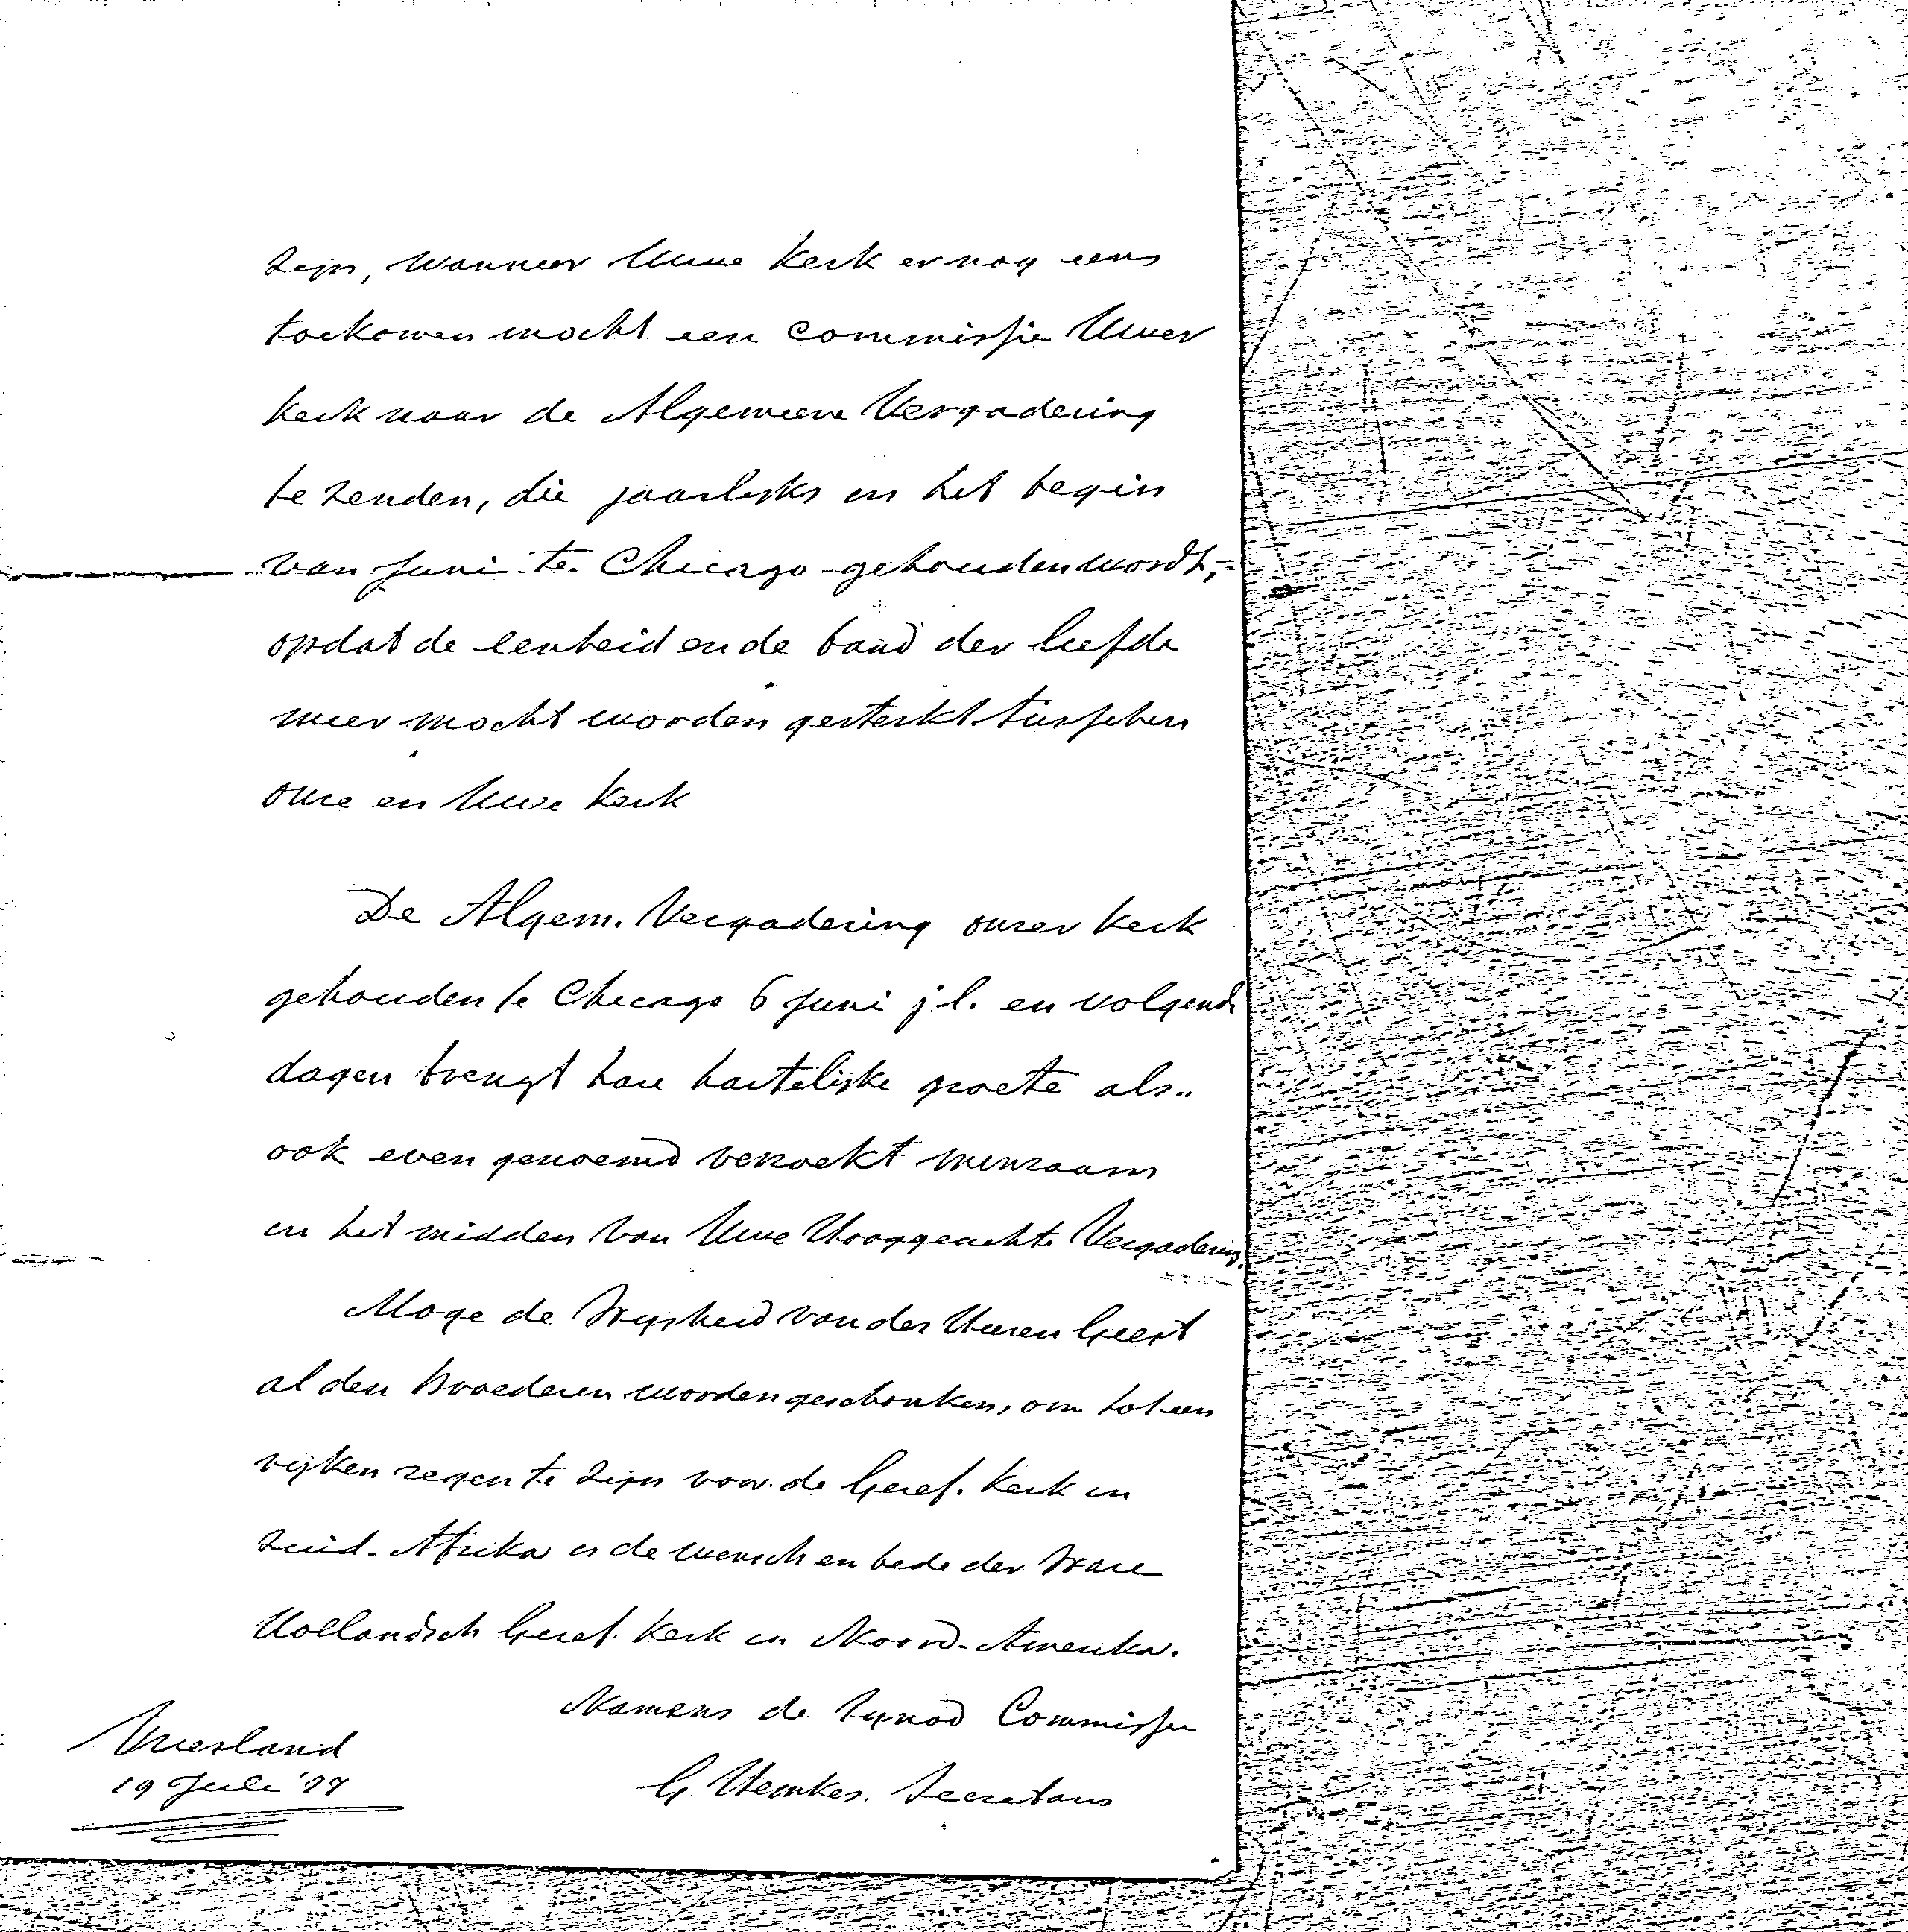 zijn, wanneer Uwe Kerk er nog eens
toekomen mocht een Commissie Uwer
Kerk naar de Algemeene Vergadering
te zenden, die jaarlijks in het begin
van Juni te Chicago gehouden wordt,
opdat de eenheid en de band der liefde
meer mocht worden gesterkt tusschen
onze en Uwe Kerk
De Algem. Vergadering onzer Kerk
gehouden te Chicago 6 Juni j.l. en volgende
dagen brengt hare hartelijke groete als
ook even genoemd verzoekt minzaam
in het midden van Uwe Hooggeachte Vergadering.
Moge de Wijsheid van den Heiligen Geest
al den Broederen worden geschonken, om tot een
rijken zegen te zijn voor de Geref. Kerk in
Zuid-Afrika is de wensch en bede der Ware
Hollandsch Geref. Kerk in Noord-Amerika.
Namens de Synod Commissie
Vriesland
G. Hemkes. Secretaris
19 Juli '77